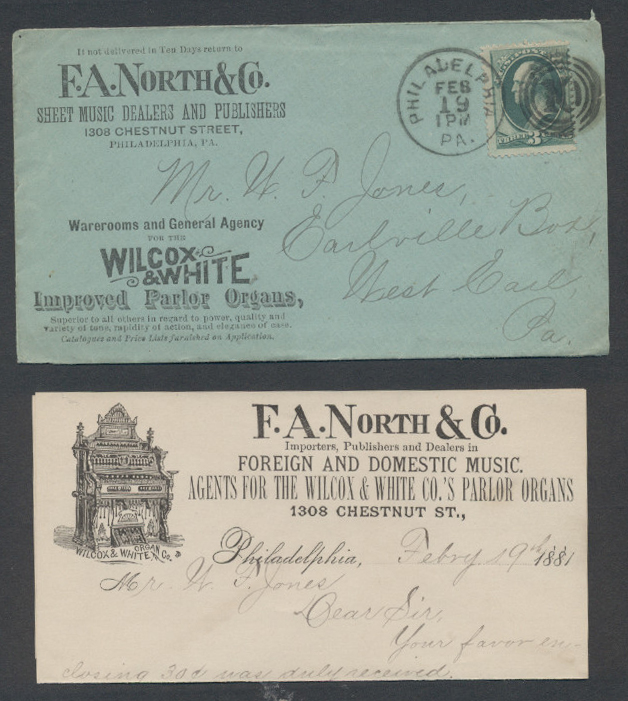 If not delivered in Ten Days return to
F.A. NORTH & CO.
SHEET MUSIC DEALERS AND PUBLISHERS
1308 CHESTNUT STREET,
PHILADELPHIA, PA.
PHILADELPHIA
FEB
19
1PM
PA.
Mr. W. F. Jones,
Earlville Box,
West Earl
Pa.
Warerooms and General Agency
FOR THE
WILCOX
& WHITE
Improved Parlor Organs,
Superior to all others in regard to power, quality and
variety of tone, rapidity of action, and elegance of case.
Catalogues and Price Lists furnished on Application.
F. A. NORTH & CO.
Importers, Publishers and Dealers in
FOREIGN AND DOMESTIC MUSIC.
AGENTS FOR THE WILCOX & WHITE CO.'S PARLOR ORGANS
1308 CHESTNUT ST.,
WILCOX & WHITE ORGAN Co.
Philadelphia, Febry 19th 1881
Mr. W. F. Jones
Dear Sir,
Your favor en-
closing 30¢ was duly received.